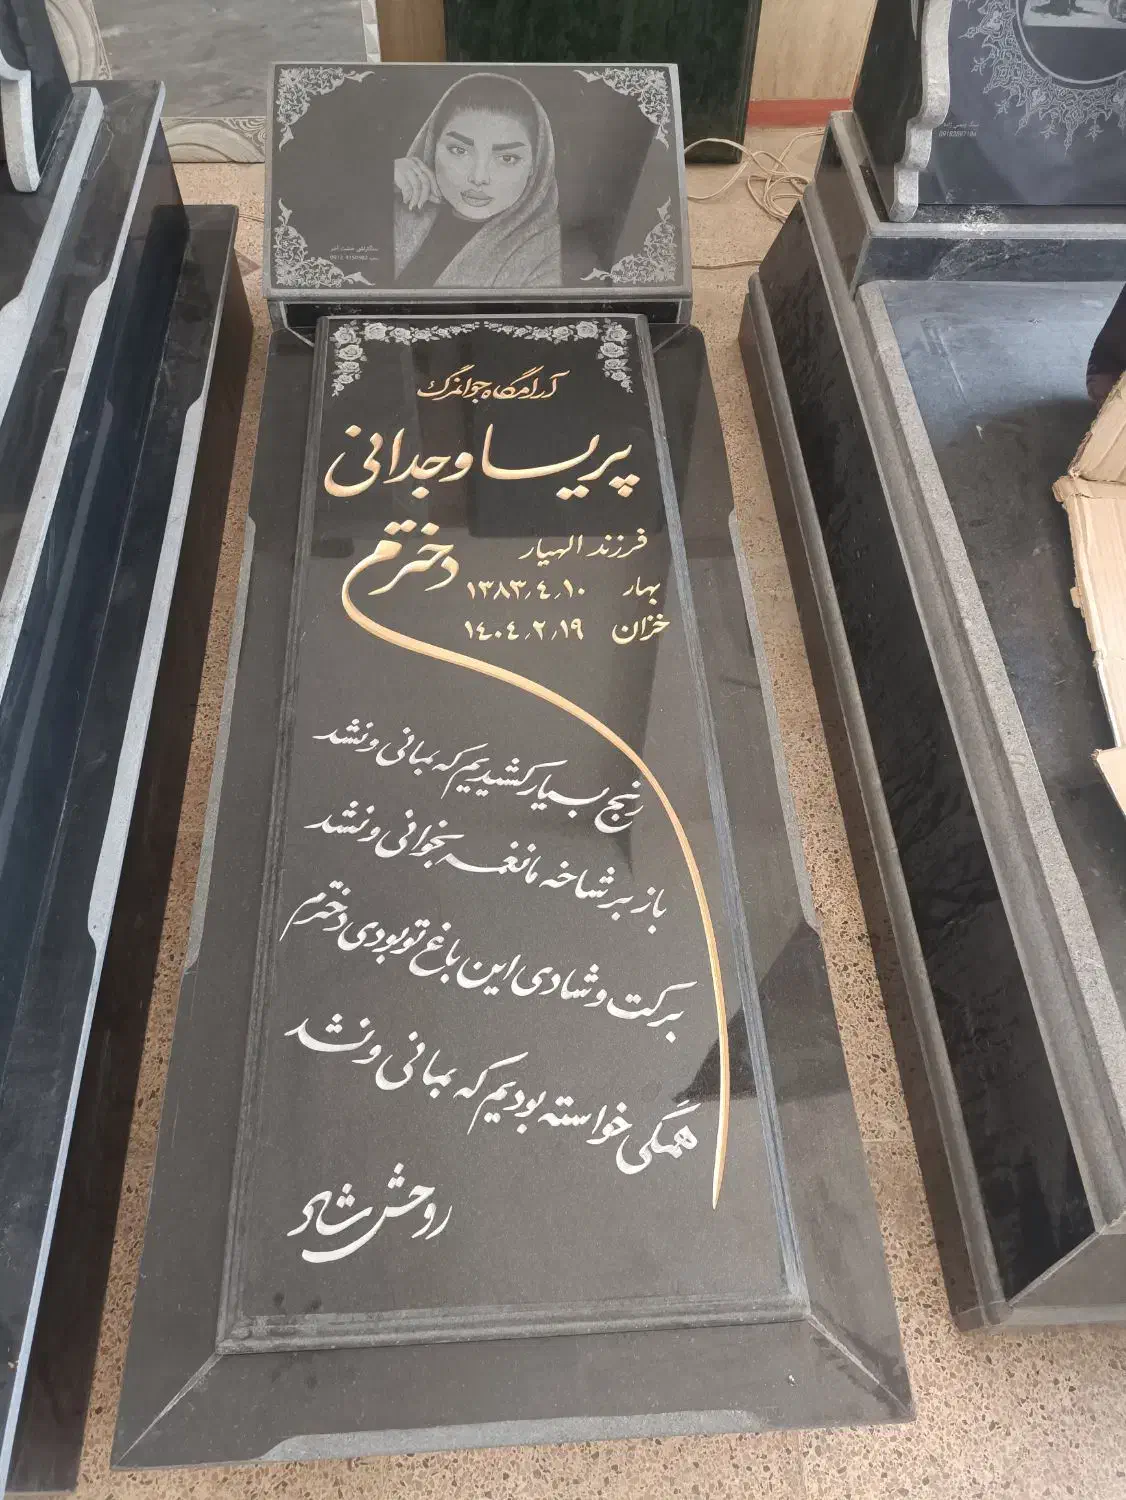 آرامگاه جوانمرگ
پریسا وجدانی
فرزند الهیار
بهار ۱۳۸۳٫۴٫۱۰
خزان ۱۴۰۴٫۲٫۱۹
دخترم
رنج بسیار کشیدیم که بمانی و نشد
باز بر شاخه ما نغمه بخوانی و نشد
برکت و شادی این باغ تو بودی دخترم
همگی خواسته بودیم که بمانی و نشد
روحش شاد